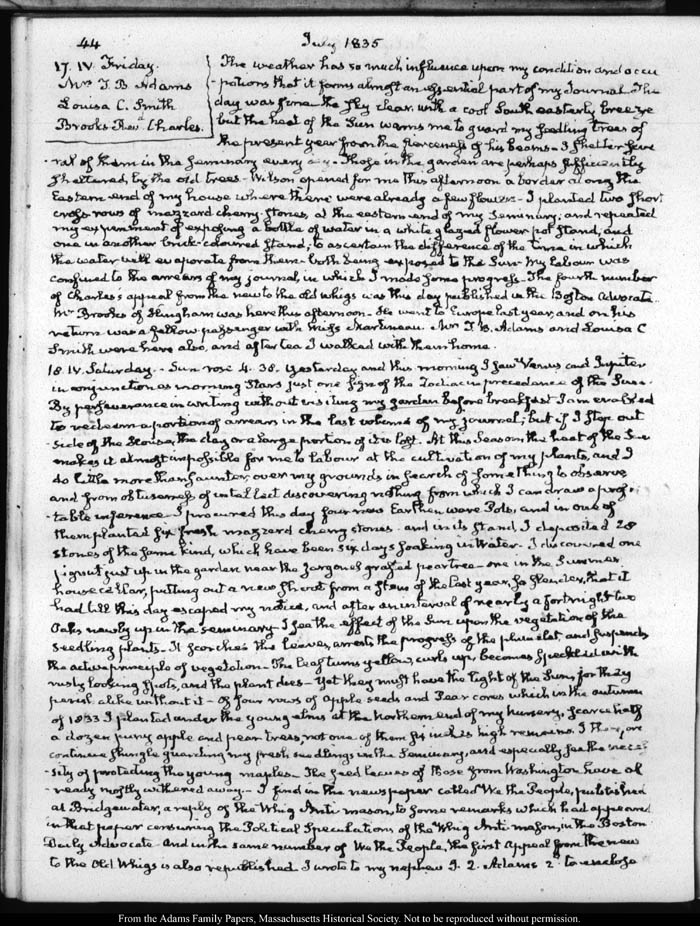 44
July 1835
17. IV. Friday.
Mrs T B Adams
Louisa C. Smith
Brooks Revd Charles.
The weather has so much influence upon my condition and occu
-pations that it forms almost an essential part of my Journal. The
day was fine the sky clear, with a cool South easterly breeze
but the heat of the Sun warns me to guard my seedling trees of
the present year from the fierceness of his beams. I shelter seve
-ral of them in the Seminary every day. Those in the garden are perhaps sufficiently
sheltered, by the old trees. Wilson opened for me this afternoon a border along the
Eastern end of my house where there were already a few flowers. I planted two short
cross rows of mazzard cherry stones, at the eastern end of my Seminary; and repeated
my experiment of exposing a bottle of water in a white glazed flower pot Stand, and
one in another brick-coloured Stand; to ascertain the difference of the time in which
the water will evaporate from them both being exposed to the Sun. My labour was
confined to the arrears of my journal, in which I made some progress. The fourth number
of Charles's appeal from the new to the old Whigs was this day published in the Boston Advocate.
Mr Brooks of Hingham was here this afternoon. He went to Europe last year, and on his
return was a fellow passenger with Miss Martineau. Mrs T. B. Adams and Louisa C
Smith were here also, and after tea I walked with them home.
18. IV. Saturday. Sun rose 4. 38. Yesterday and this morning I saw Venus and Jupiter
in conjunction as morning Stars just one sign of the Zodiac in precedence of the Sun.
By perseverance in writing without visiting my garden before breakfast I am enabled
to redeem a portion of arrears in the last volume of my journal; but if I step out
side of the House, the day or a large portion of it is lost. At this Season the heat of the Sun
makes it almost impossible for me to labour at the cultivation of my plants, and I
do little more than saunter over my grounds in search of something to observe
and from obtuseness of intellect discovering nothing from which I can draw a prof-
-table inference. I procured this day four new Earthen ware Pots, and in one of
them planted six fresh mazzard cherry stones and in its stand I deposited 28
stones of the same kind, which have been six days soaking in water. I discovered one
pignut just up in the garden near the Jargonel grafted pear tree one in the Summer
house cellar, putting out a new shoot from a stem of the last year, so slender, that it
had till this day escaped my notice, and after an interval of nearly a fortnight two
Oaks newly up in the seminary. I see the effect of the Sun upon the vegetation of the
seedling plants. It scorches the leaves, arrests the progress of the plumelet, and suspends
the active principle of vegetation. The leaf turns yellow, curls up, becomes speckled with
rusty looking spots, and the plant dies. Yet they must have the light of the Sun, for they
perish alike without it. Of four rows of apple seeds and Pear cores which in the autumn
of 1833 I planted under the young elms at the Northern end of my Nursery, scarce half
a dozen puny apple and pear trees, not one of them six inches high remains. I therefore
continue shingle guarding my fresh seedlings in the Seminary, and especially see the nece
-sity of protecting the young maples. The seed leaves of those from Washington have al
-ready mostly withered away. I find in the newspaper called We the People, published
at Bridgewater, a reply of the Whig Anti-mason, to some remarks which had appeared
in that paper censuring the Political Speculations of the Whig Anti mason, in the Boston
Daily Advocate. And in the same number of We the People, the first Appeal from the new
to the Old Whigs is also republished. I wrote to my nephew J. Q. Adams 2d to enclose
From the Adams Family Papers, Massachusetts Historical Society. Not to be reproduced without permission.